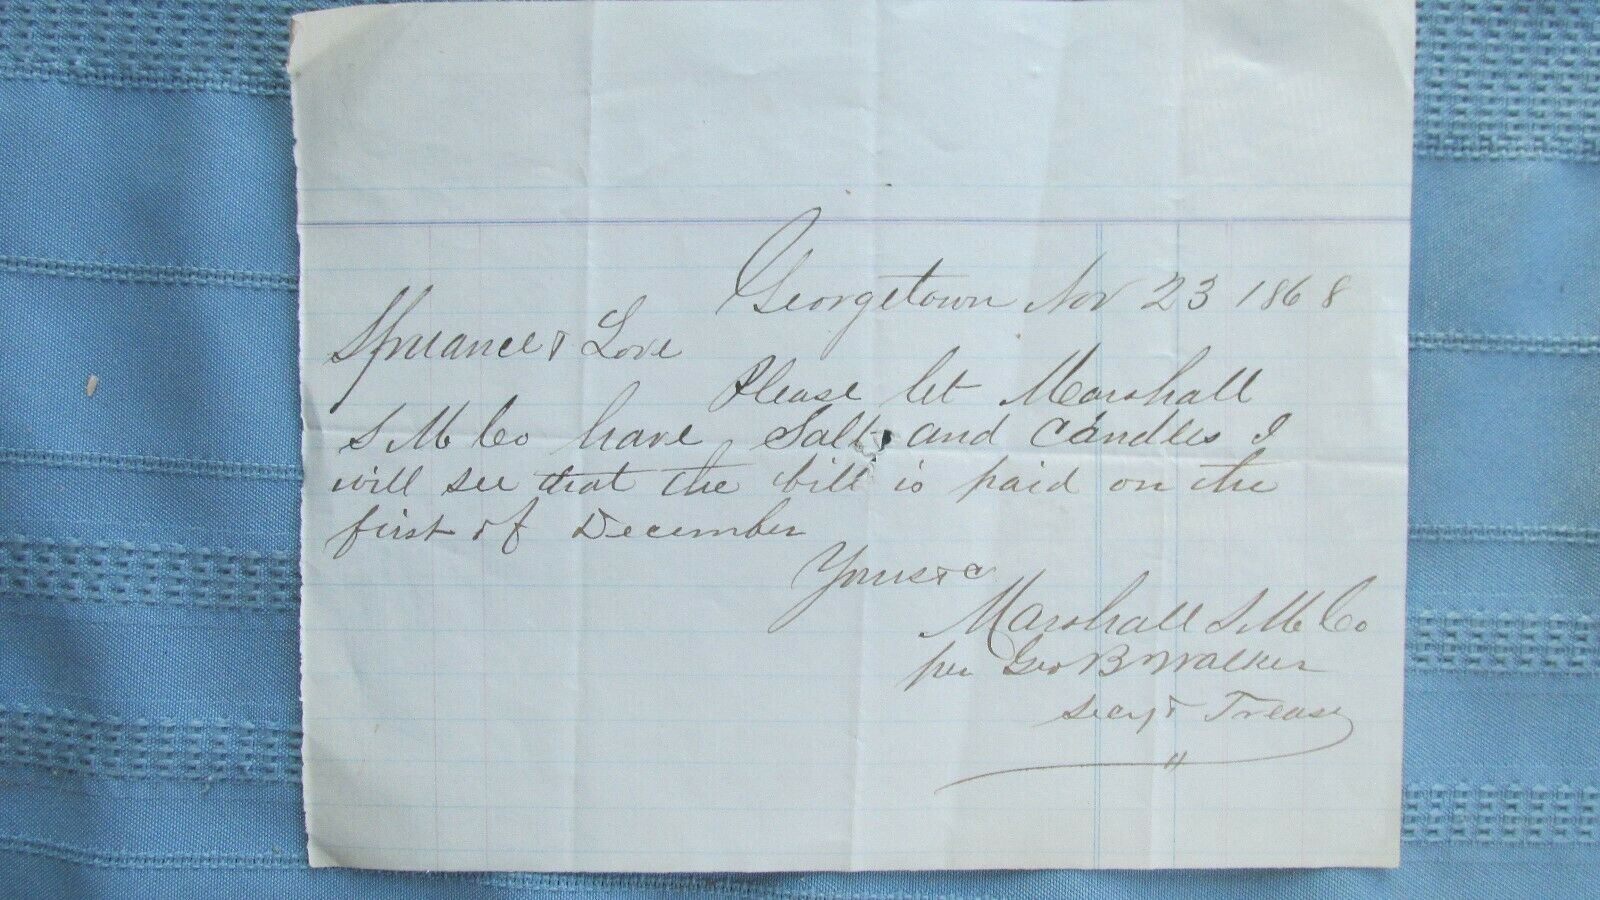 Georgetown Nov 23 1868
Spruance & Love
Please let Marshall
S M Co have Salt and Candles I
will see that the bill is paid on the
first of December
Yours &c
Marshall S M Co
per Geo B Walker
Secy & Treas